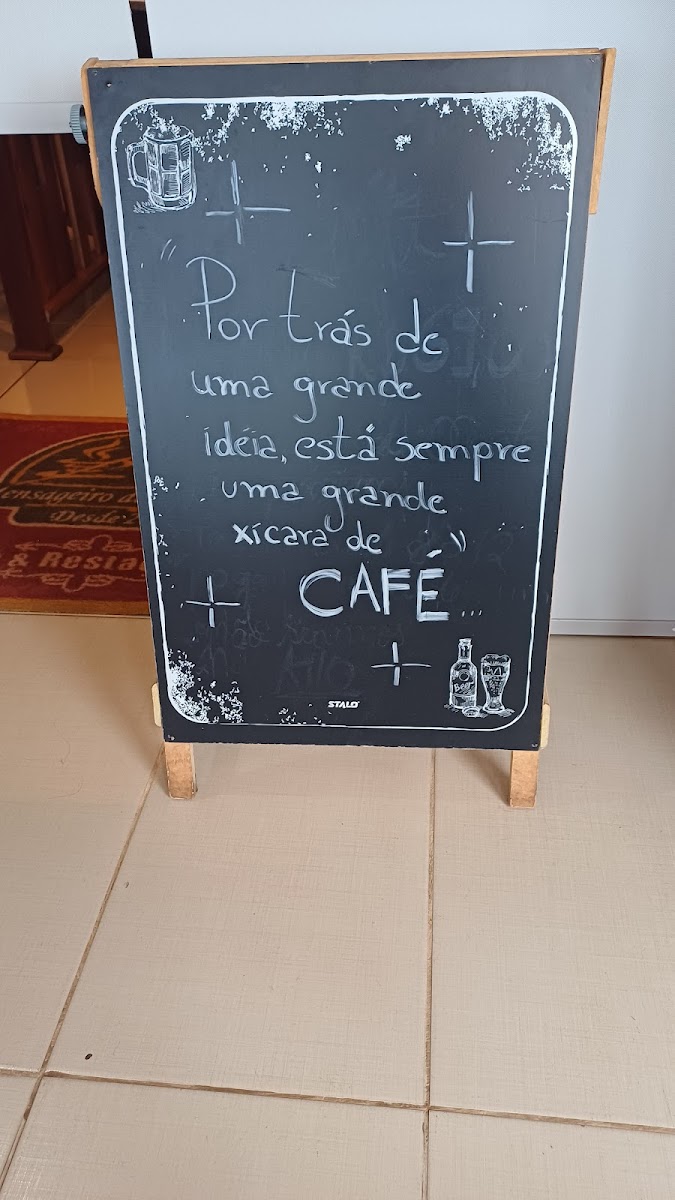 "Por trás de
uma grande
idéia, está sempre
uma grande
xícara de
CAFÉ"...
STALO
Beer
ensageiro d
Desde
& Resta